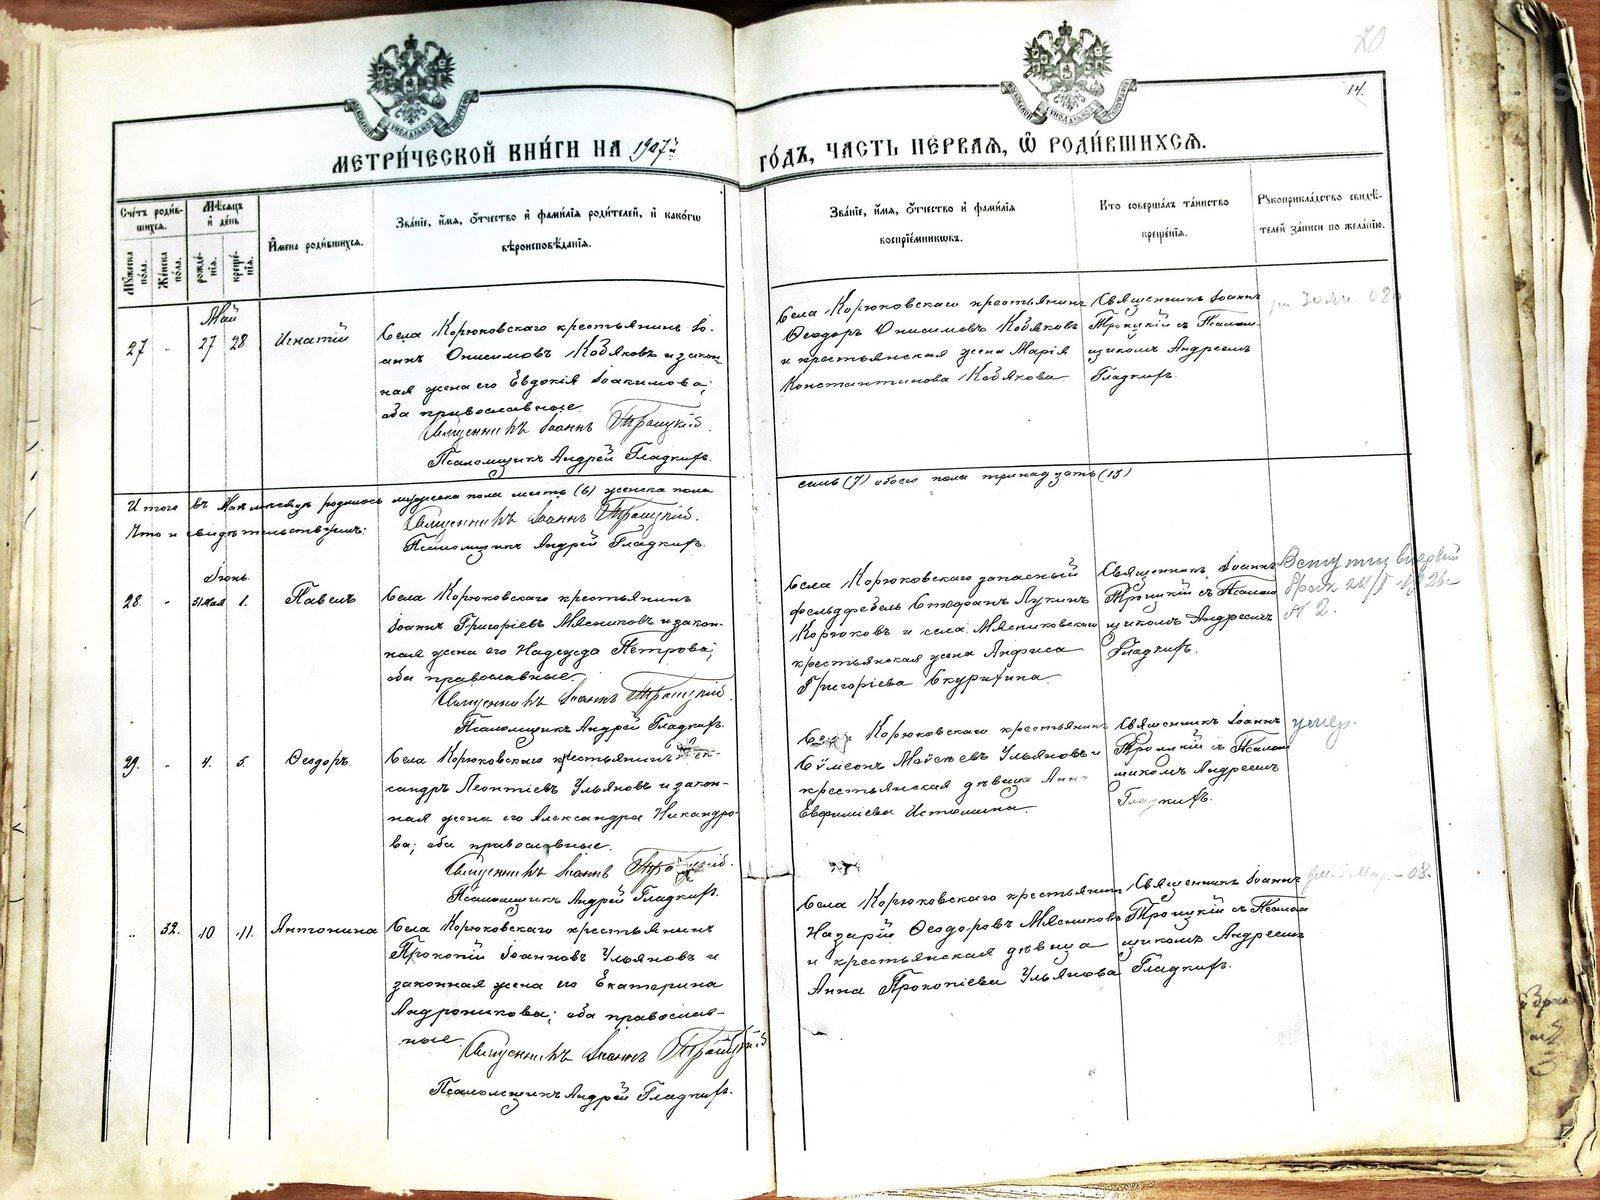 70
14.
МЕТРИ́ЧЕСКОЙ КНИ́ГИ НА 1907й ГО́ДЪ, ЧАСТЬ ПЕ́РВАЯ, Ѿ РОДИ́ВШИХСЯ.
Сче́тъ роди́в-
шихся.
Му́жеска по́ла.
Же́нска по́ла.
Мѣ́сяцъ
и де́нь
рожде́-
нія.
креще́-
нія.
И҆мена роди́вшихся.
Зва́ніе, и҆́мя, ѻ҆́тчество и҆ фами́лія роди́телей, и҆ како́гѡ
вѣроисповѣ́данія.
Зва́ніе, и҆́мя, ѻ҆́тчество и҆ фами́лія
воспріе́мниковъ.
Кто соверша́лъ та́инство
креще́нія.
Рꙋкоприкла́дство свидѣ́-
телей за́писи по жела́нію.
Май
27 " 27 28
Игнатій
Села Корюковскаго крестьянинъ Іо-
аннъ Онисимовъ Кобяковъ и закон-
ная жена его Евдокія Іоакимова;
оба православные.
Священникъ Іоаннъ Троицкій.
Псаломщикъ Андрей Гладкихъ.
Села Корюковскаго крестьянинъ
Ѳеодоръ Онисимовъ Кобяковъ
и крестьянская жена Марія
Константинова Кобякова
Священникъ Іоаннъ
Троицкій съ Псалом-
щикомъ Андреемъ
Гладкихъ.
Итого въ Маѣ мѣсяцѣ родилось мужеска пола шесть (6) женска пола
семь (7) обоего пола тринадцать (13)
Что и свидѣтельствуемъ:
Священникъ Іоаннъ Троицкій.
Псаломщикъ Андрей Гладкихъ.
Іюнь.
28. " 31 Мая 1.
Павелъ
Села Корюковскаго крестьянинъ
Іоаннъ Григоріевъ Мясниковъ и закон-
ная жена его Надежда Петрова;
оба православные.
Священникъ Іоаннъ Троицкій.
Псаломщикъ Андрей Гладкихъ.
Села Корюковскаго запасный
фельдфебель Стефанъ Лукинъ
Корюковъ и села Мясниковскаго
крестьянская жена Анфиса
Григоріева Скурихина
Священникъ Іоаннъ
Троицкій съ Псалом
щикомъ Андреемъ
Гладкихъ.
№ 2.
29. " 4. 5.
Ѳеодоръ
Села Корюковскаго крестьянинъ Алек-
сандръ Леонтіевъ Ульяновъ и закон-
ная жена его Александра Никандро-
ва; оба православные.
Священникъ Іоаннъ Троицкій.
Псаломщикъ Андрей Гладкихъ.
Села Корюковскаго крестьянинъ
Сѵмеонъ Моѵсеевъ Ульяновъ и
крестьянская дѣвица Анна
Евфиміева Истомина.
Священникъ Іоаннъ
Троицкій съ Псалом
щикомъ Андреемъ
Гладкихъ.
умер.
" 32. 10 11.
Антонина
Села Корюковскаго крестьянинъ
Прокопій Іоанновъ Ульяновъ и
законная жена его Екатерина
Андроникова; оба православ-
ные.
Священникъ Іоаннъ Троицкій
Псаломщикъ Андрей Гладкихъ.
Села Корюковскаго крестьянинъ
Назарій Ѳеодоровъ Мясниковъ
и крестьянская дѣвица
Анна Прокопіева Ульянова
Священникъ Іоаннъ
Троицкій съ Псалом
щикомъ Андреемъ
Гладкихъ.